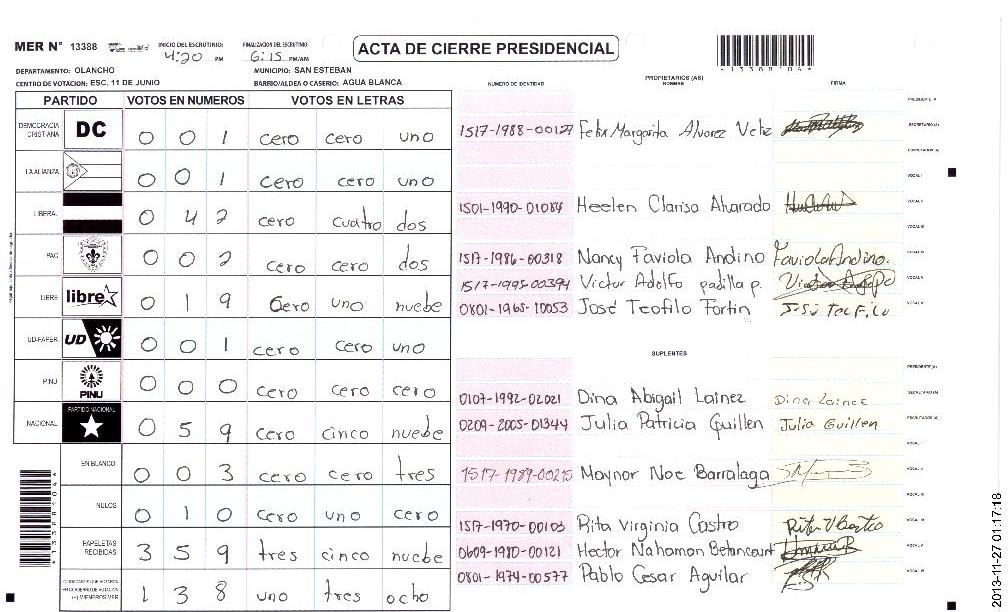 MER N° 13388 INICIO DEL ESCRUTINIO: 4:20 PM FINALIZACION DEL ESCRUTINIO: 6:15 PM/AM
ACTA DE CIERRE PRESIDENCIAL
*13388104*
DEPARTAMENTO: OLANCHO MUNICIPIO: SAN ESTEBAN
CENTRO DE VOTACION: ESC. 11 DE JUNIO BARRIO/ALDEA O CASERIO: AGUA BLANCA
PARTIDO VOTOS EN NUMEROS VOTOS EN LETRAS
DEMOCRACIA CRISTIANA DC 0 0 1 cero cero uno
LA ALIANZA 0 0 1 cero cero uno
LIBERAL 0 4 2 cero cuatro dos
PAC 0 0 2 cero cero dos
LIBRE libre 0 1 9 cero uno nuebe
UD-FAPER UD 0 0 1 cero cero uno
PINU PINU 0 0 0 cero cero cero
NACIONAL PARTIDO NACIONAL 0 5 9 cero cinco nuebe
EN BLANCO 0 0 3 cero cero tres
NULOS 0 1 0 cero uno cero
PAPELETAS RECIBIDAS 3 5 9 tres cinco nuebe
(+) MIEMBROS MER 1 3 8 uno tres ocho
NUMERO DE IDENTIDAD PROPIETARIOS (AS) NOMBRE FIRMA
PRESIDENTE (A)
1517-1988-00127 Felix Margarita Alvarez Veliz SECRETARIO (A)
ESCRUTADOR (A)
VOCAL I
1501-1990-01084 Heelen Clarisa Alvarado VOCAL II
VOCAL III
1517-1986-00318 Nancy Faviola Andino Faviola Andino. VOCAL IV
1517-1995-00394 Victor Adolfo padilla p. VOCAL V
0801-1965-10053 José Teofilo Fortin VOCAL VI
SUPLENTES
PRESIDENTE (A)
0107-1992-02021 Dina Abigail Lainez Dina Lainez SECRETARIO (A)
0209-2005-01344 Julia Patricia Guillen Julia Guillen ESCRUTADOR (A)
VOCAL I
1517-1989-00215 Maynor Noe Barralaga VOCAL II
VOCAL III
1517-1970-00103 Rita Virginia Castro VOCAL IV
0609-1980-00121 Hector Nahaman Betancourt VOCAL V
0801-1974-00577 Pablo Cesar Aguilar VOCAL VI
2013-11-27 01:17:18